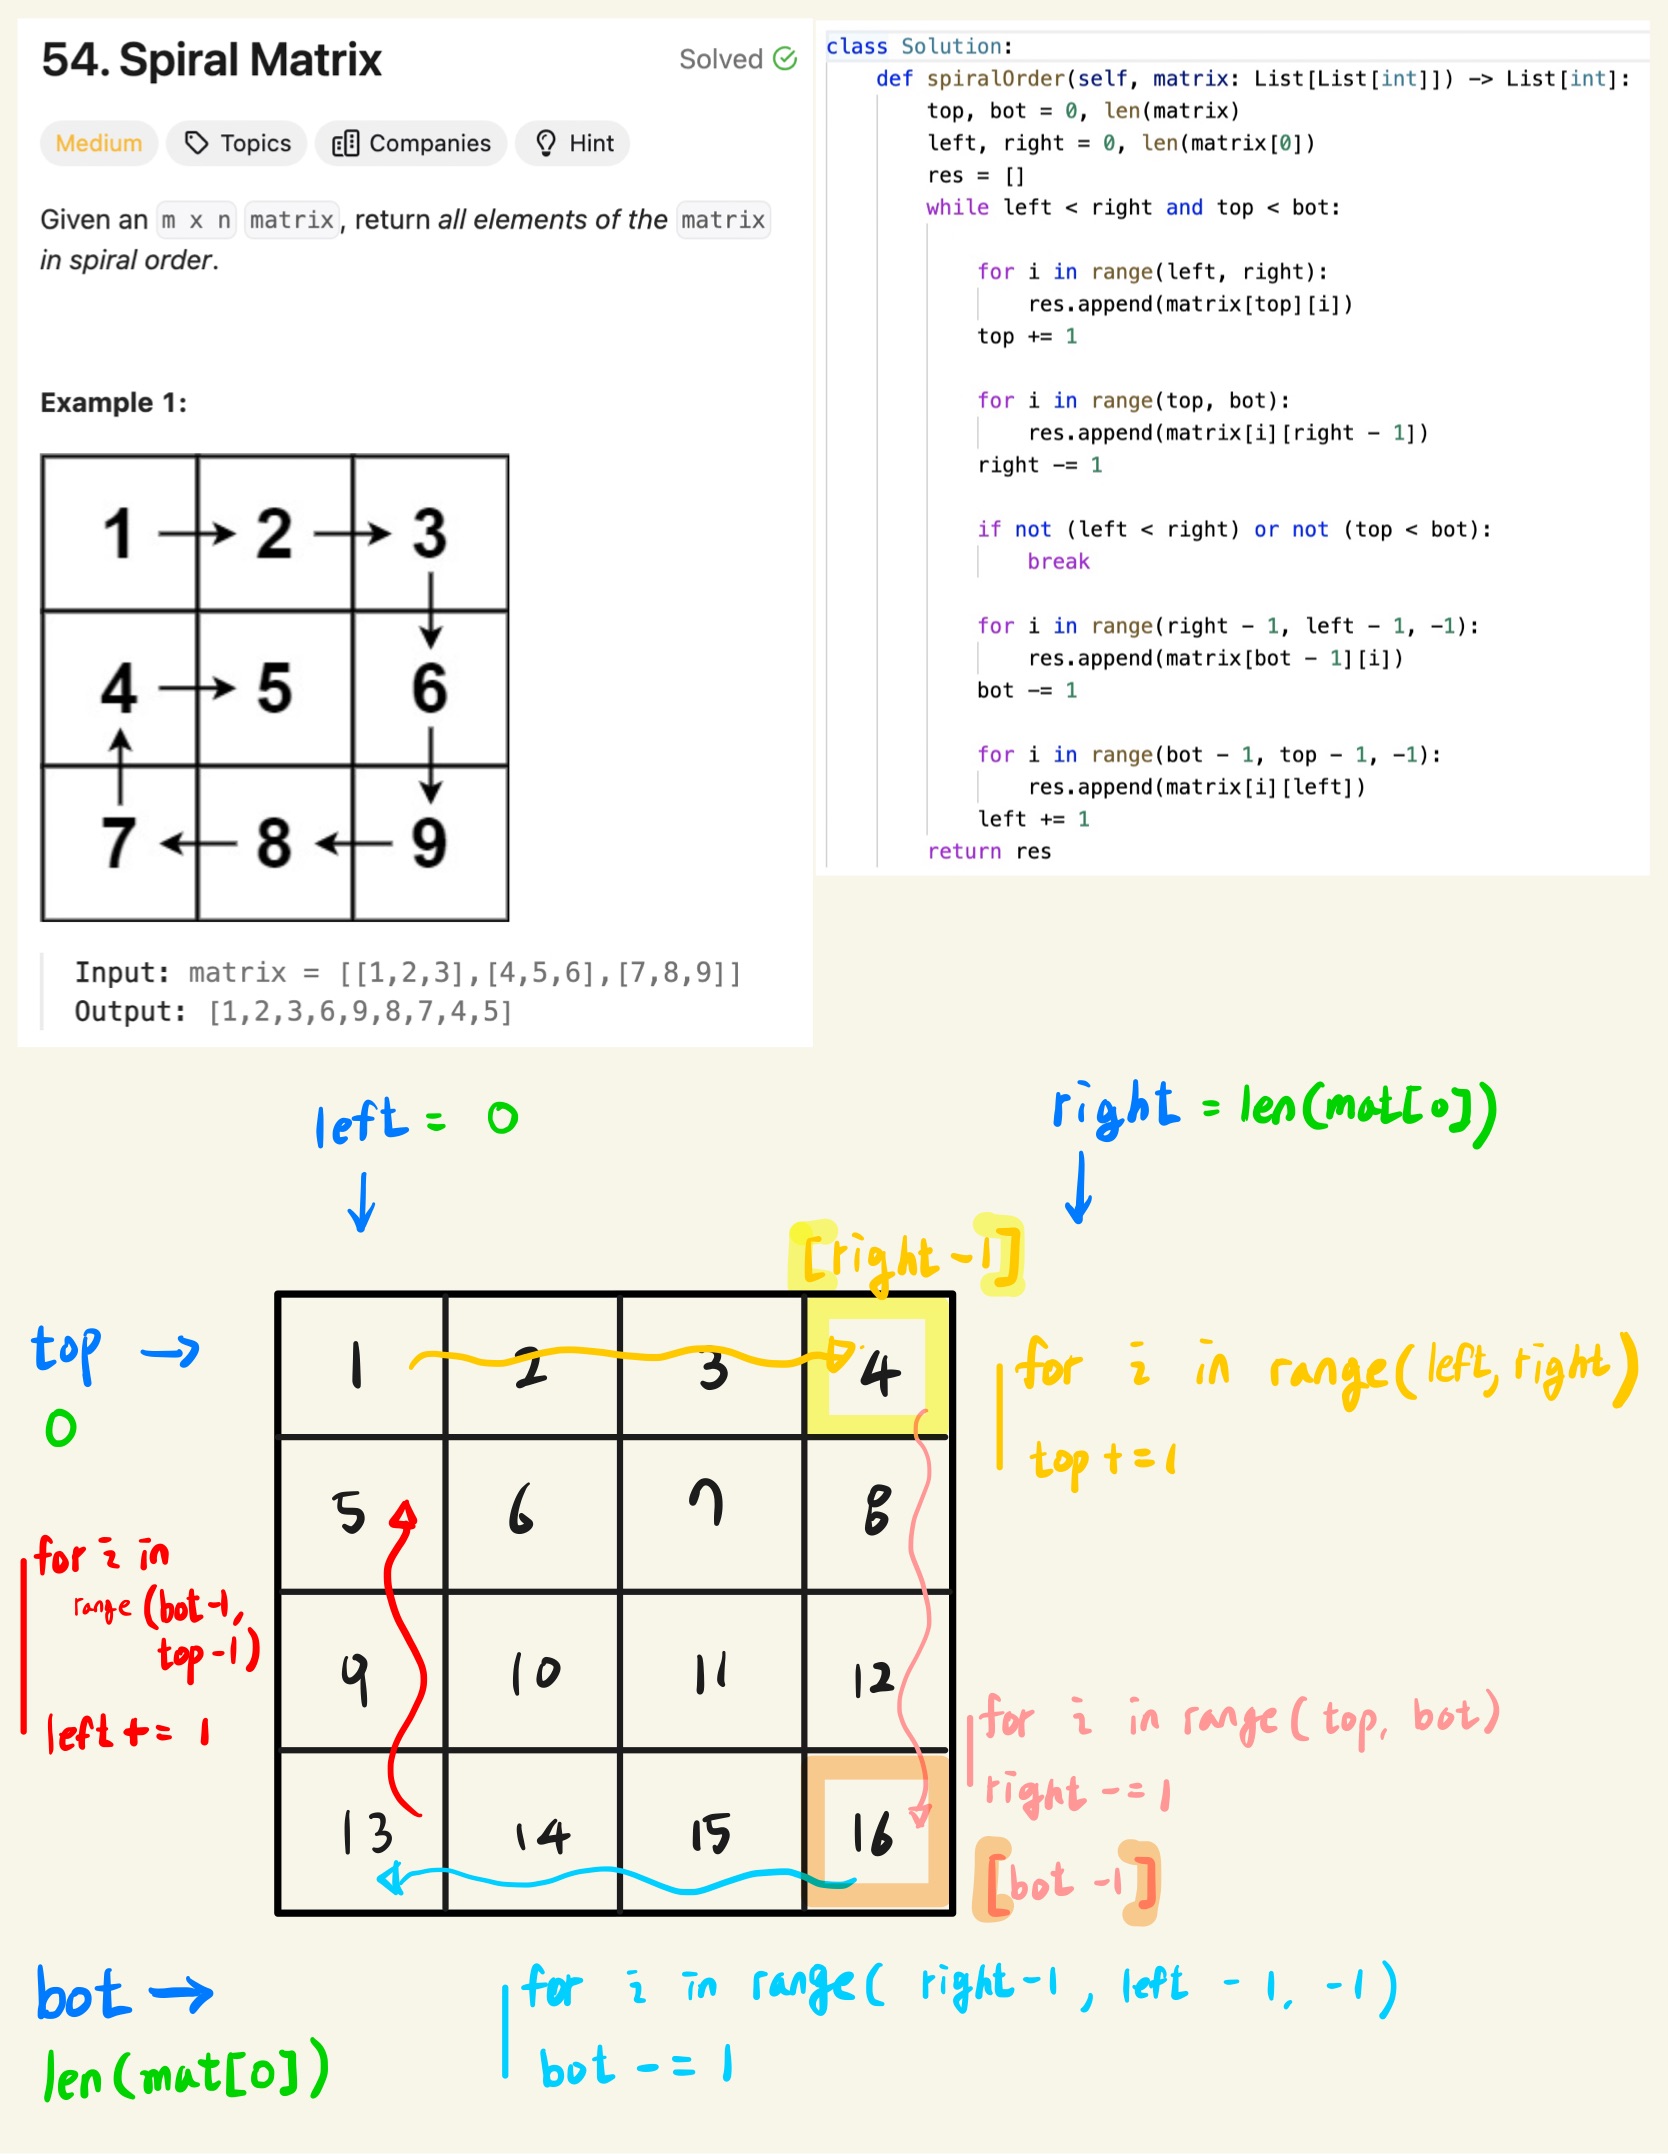 54. Spiral Matrix
Solved
Medium
Topics
Companies
Hint
Given an m x n matrix, return all elements of the matrix
in spiral order.
Example 1:
1 2 3
4 5 6
7 8 9
Input: matrix = [[1,2,3],[4,5,6],[7,8,9]]
Output: [1,2,3,6,9,8,7,4,5]
class Solution:
def spiralOrder(self, matrix: List[List[int]]) -> List[int]:
top, bot = 0, len(matrix)
left, right = 0, len(matrix[0])
res = []
while left < right and top < bot:
for i in range(left, right):
res.append(matrix[top][i])
top += 1
for i in range(top, bot):
res.append(matrix[i][right - 1])
right -= 1
if not (left < right) or not (top < bot):
break
for i in range(right - 1, left - 1, -1):
res.append(matrix[bot - 1][i])
bot -= 1
for i in range(bot - 1, top - 1, -1):
res.append(matrix[i][left])
left += 1
return res
left = 0
right = len(mat[0])
[right-1]
top →
0
1 2 3 4
5 6 7 8
9 10 11 12
13 14 15 16
for i in range(left, right)
top += 1
for i in
range (bot-1,
top-1)
left += 1
for i in range(top, bot)
right -= 1
[bot -1]
bot →
len(mat[0])
for i in range( right-1, left - 1, -1)
bot -= 1